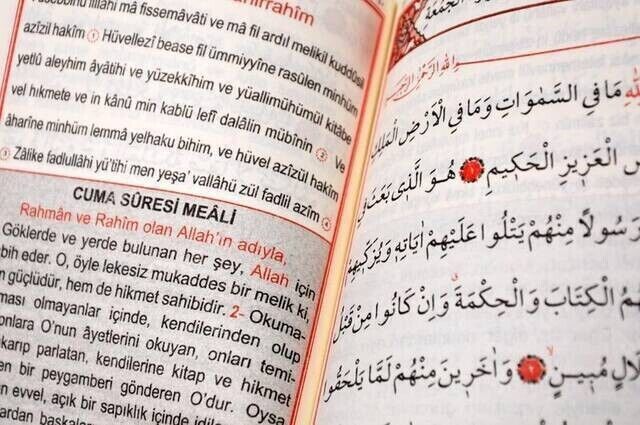 Yüsebbihu lillâhi mâ fissemâvâti ve mâ fil ardıl melikil kuddûsil
azîzil hakîm 1 Hüvellezî bease fil ümmiyyîne rasûlen minhüm
yetlû aleyhim âyâtihî ve yüzekkîhim ve yüallimühümül kitâbe
vel hıkmete ve in kânû min kablü lefî dalâlin mübînin 2 Ve
âharîne minhüm lemmâ yelhaku bihim, ve hüvel azîzül hakîm
3 Zâlike fadlullâhi yü'tîhi men yeşa' vallâhü zül fadlil azîm 4
CUMA SÛRESİ MEÂLİ
Rahmân ve Rahîm olan Allah'ın adıyla,
Göklerde ve yerde bulunan her şey, Allah için
bih eder. O, öyle lekesiz mukaddes bir melik ki,
güçlüdür, hem de hikmet sahibidir. 2- Okuma-
ması olmayanlar içinde, kendilerinden olup
onlara O'nun âyetlerini okuyan, onları temi-
karıp parlatan, kendilerine kitap ve hikmet
en bir peygamberi gönderen O'dur. Oysa
evvel, açık bir sapıklık içinde idiler
مَا فِي السَّمٰوَاتِ وَمَا فِي الْاَرْضِ الْمَلِكِ
الْعَزِيزِ الْحَكِيمِ ١ هُوَ الَّذِي بَعَثَ فِي
رَسُولًا مِنْهُمْ يَتْلُوا عَلَيْهِمْ اٰيَاتِهِ وَيُزَكِّيهِمْ
الْكِتَابَ وَالْحِكْمَةَ وَاِنْ كَانُوا مِنْ قَبْلُ
مُبِينٍ ٢ وَاٰخَرِينَ مِنْهُمْ لَمَّا يَلْحَقُوا